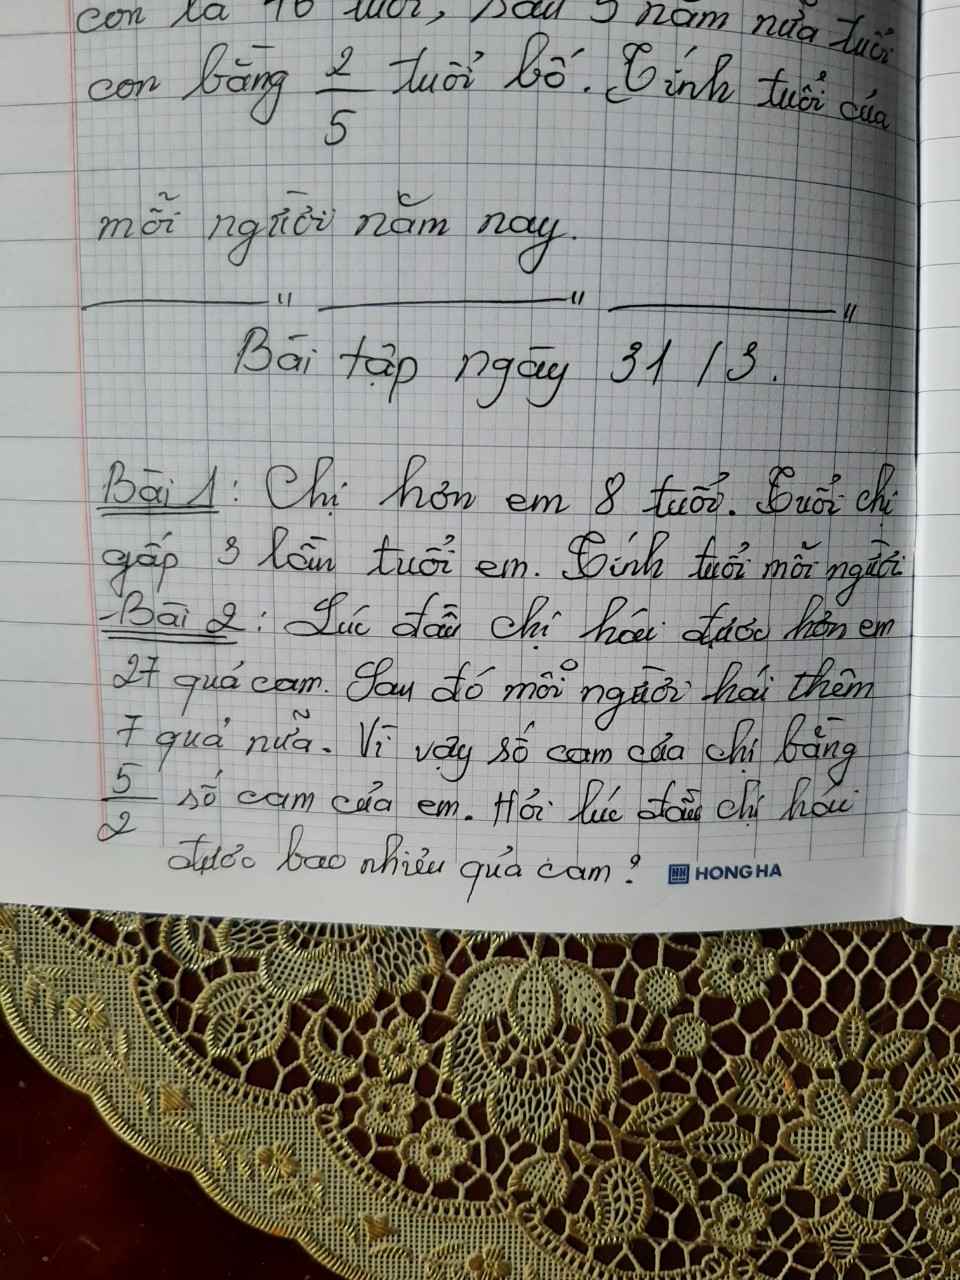 con là 16 tuổi, sau 5 năm nữa tuổi
con bằng 2/5 tuổi bố. Tính tuổi của
mỗi người năm nay.
Bài tập ngày 31/3.
Bài 1: Chị hơn em 8 tuổi. Tuổi chị
gấp 3 lần tuổi em. Tính tuổi mỗi người
Bài 2: Lúc đầu chị hái được hơn em
27 quả cam. Sau đó mỗi người hái thêm
7 quả nữa. Vì vậy số cam của chị bằng
5/2 số cam của em. Hỏi lúc đầu chị hái
được bao nhiêu quả cam?
HONG HA